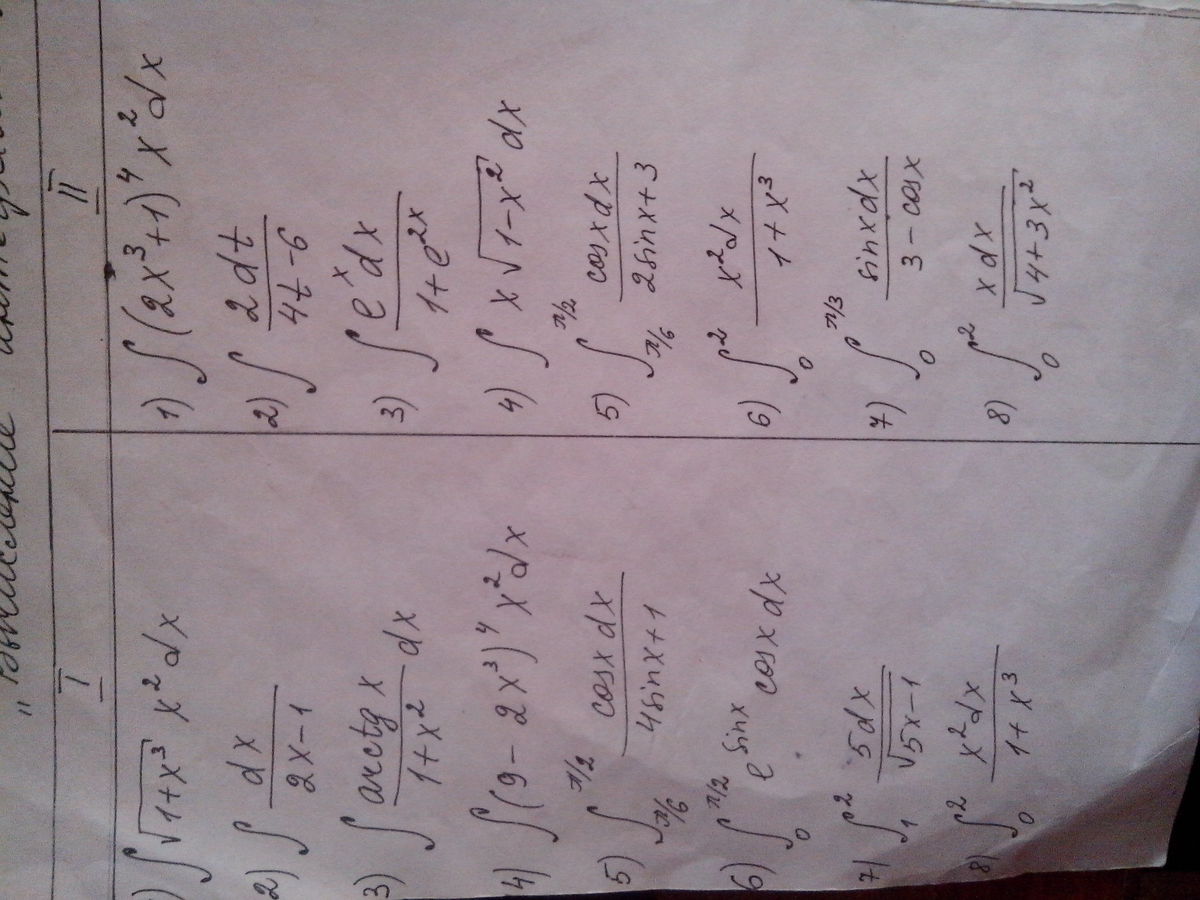 "Вычисление
I
) ∫ √(1+x³) x² dx
2) ∫ dx/(2x-1)
3) ∫ arctg x/(1+x²) dx
4) ∫ (9 - 2x³)⁴ x² dx
5) ∫_{π/6}^{π/2} cosx dx/(4sinx+1)
6) ∫_0^{π/2} e^{sinx} cosx dx
7) ∫_1^2 5dx/√(5x-1)
8) ∫_0^2 x²dx/(1+x³)
II
1) ∫ (2x³+1)⁴ x² dx
2) ∫ 2dt/(4t-6)
3) ∫ eˣdx/(1+e²ˣ)
4) ∫ x √(1-x²) dx
5) ∫_{π/6}^{π/2} cosxdx/(2sinx+3)
6) ∫_0^2 x²dx/(1+x³)
7) ∫_0^{π/3} sinxdx/(3-cosx)
8) ∫_0^2 xdx/√(4+3x²)